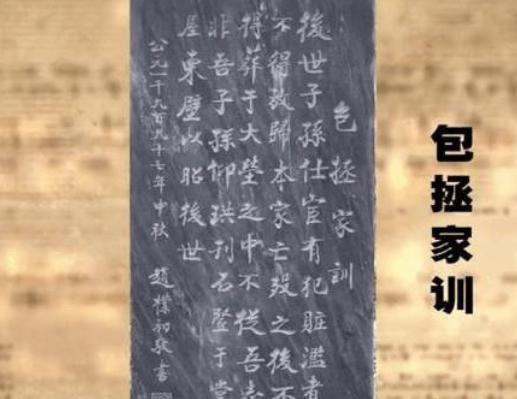 包拯家训
包拯家訓
後世子孫仕宦有犯賍濫者
不得放歸本家亡殁之後不
得葬于大塋之中不從吾志
非吾子孫仰珙刊石竪于堂
屋東壁以昭後世
公元一千九百九十七年中秋 趙樸初敬書